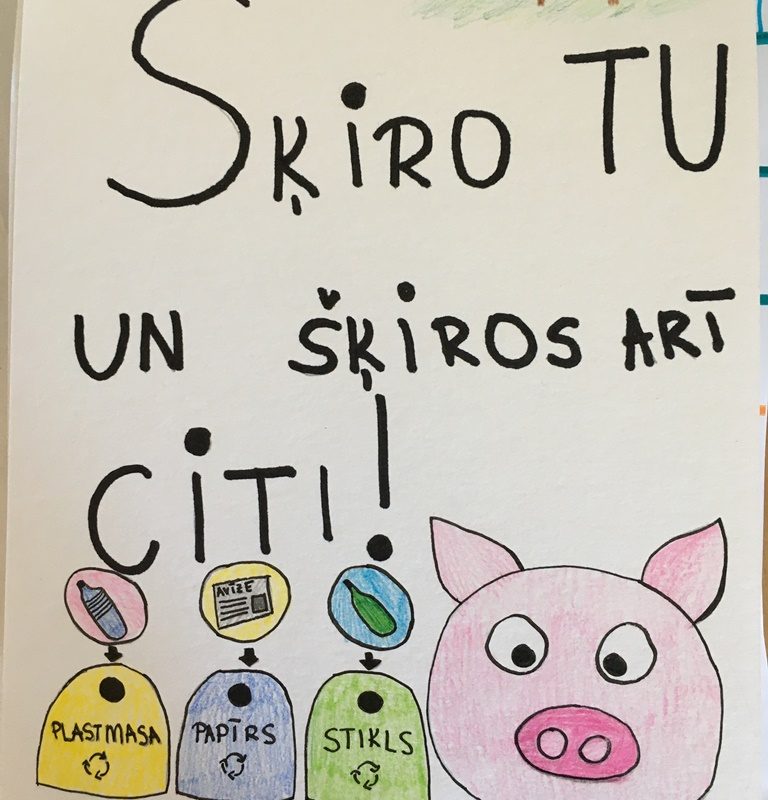 SĶIRO TU
UN ŠĶIROS ARĪ
CITI!
AVĪZE
PLASTMASA PAPĪRS STIKLS